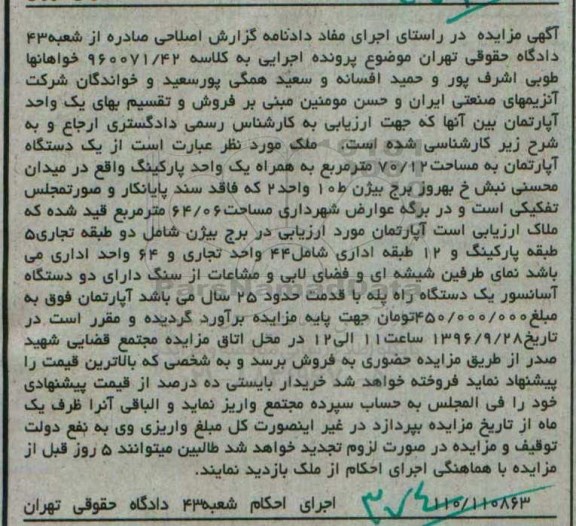 آگهی مزایده در راستای اجرای مفاد دادنامه گزارش اصلاحی صادره از شعبه۴۳
دادگاه حقوقی تهران موضوع پرونده اجرایی به کلاسه ۹۶۰۰۷۱/۴۲ خواهانها
طوبی اشرف پور و حمید افسانه و سعید همگی پورسعید و خواندگان شرکت
آنزیمهای صنعتی ایران و حسن مومنین مبنی بر فروش و تقسیم بهای یک واحد
آپارتمان بین آنها که جهت ارزیابی به کارشناس رسمی دادگستری ارجاع و به
شرح زیر کارشناسی شده است. ملک مورد نظر عبارت است از یک دستگاه
آپارتمان به مساحت۷۰/۱۲ مترمربع به همراه یک واحد پارکینگ واقع در میدان
محسنی نبش خ بهروز برج بیژن ط۱۰ واحد۲ که فاقد سند پایانکار و صورتمجلس
تفکیکی است و در برگه عوارض شهرداری مساحت۶۴/۰۶ مترمربع قید شده که
ملاک ارزیابی است آپارتمان مورد ارزیابی در برج بیژن شامل دو طبقه تجاری۵
طبقه پارکینگ و ۱۲ طبقه اداری شامل۴۴ واحد تجاری و ۶۴ واحد اداری می
باشد نمای طرفین شیشه ای و فضای لابی و مشاعات از سنگ دارای دو دستگاه
آسانسور یک دستگاه راه پله با قدمت حدود ۲۵ سال می باشد آپارتمان فوق به
مبلغ۴۵۰/۰۰۰/۰۰۰تومان جهت پایه مزایده برآورد گردیده و مقرر است در
تاریخ۱۳۹۶/۹/۲۸ ساعت۱۱ الی۱۲ در محل اتاق مزایده مجتمع قضایی شهید
صدر از طریق مزایده حضوری به فروش برسد و به شخصی که بالاترین قیمت را
پیشنهاد نماید فروخته خواهد شد خریدار بایستی ده درصد از قیمت پیشنهادی
خود را فی المجلس به حساب سپرده مجتمع واریز نماید و الباقی آنرا ظرف یک
ماه از تاریخ مزایده بپردازد در غیر اینصورت کل مبلغ واریزی وی به نفع دولت
توقیف و مزایده در صورت لزوم تجدید خواهد شد طالبین میتوانند ۵ روز قبل از
مزایده با هماهنگی اجرای احکام از ملک بازدید نمایند.
۱۱۰/۱۱۰۸۶۳ اجرای احکام شعبه۴۳ دادگاه حقوقی تهران
ParsNamadData